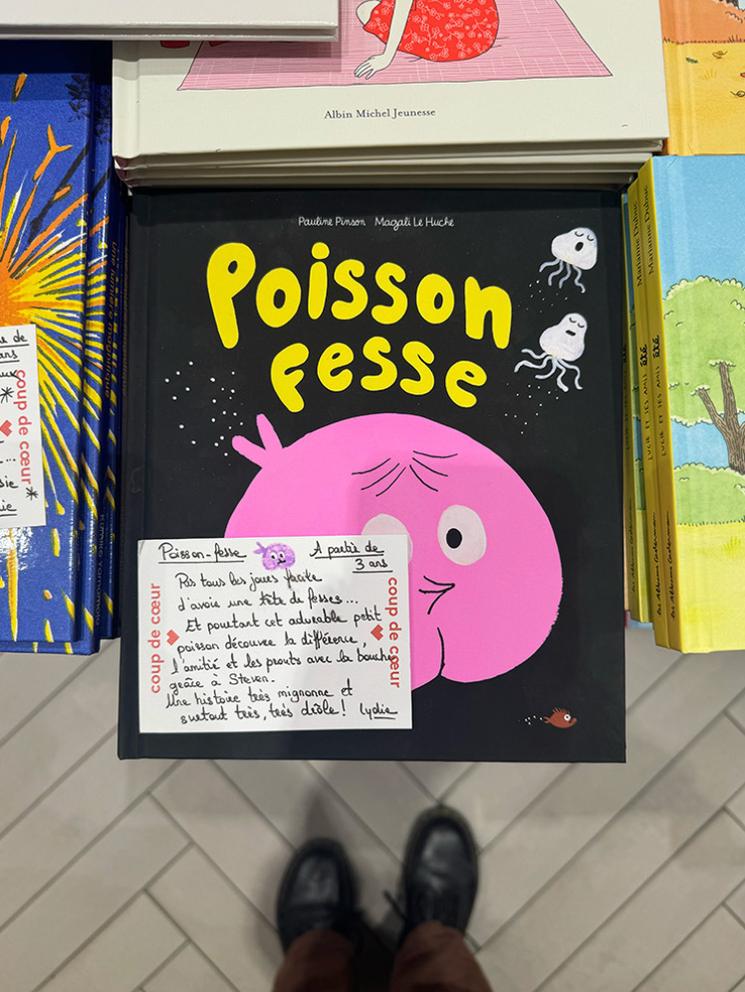 Albin Michel Jeunesse
Pauline Pinson Magali Le Huche
Poisson
fesse
Poisson-fesse
A partir de
3 ans
Pas tous les jours facile
d'avoir une tête de fesses...
Et pourtant cet adorable petit
poisson découvre la différence,
l'amitié et les prouts avec la bouche
grâce à Steven.
Une histoire très mignonne et
surtout très, très drôle! Lydie
coup de cœur
coup de cœur
de
ans
coup de cœur
Marianne Dubuc
Marianne Dubuc
LUCIE ET SES AMIS été
LUCIE ET SES AMIS été
Les Albums Casterman